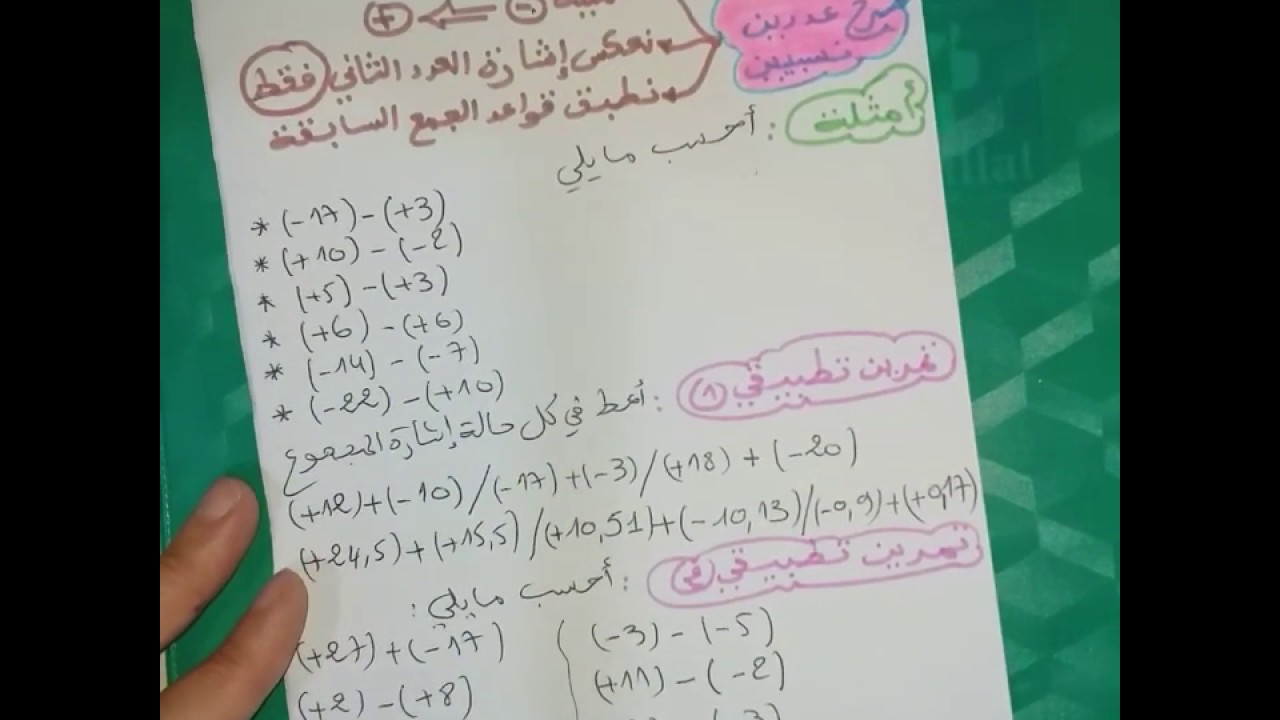 ⊖ ⇐ ⊕
طرح عددين نسبيين
نعكس إشارة العدد الثاني فقط
نطبق قواعد الجمع السابقة
أمثلة : أحسب مايلي
* (-17) - (+3)
* (+10) - (-2)
* (+5) - (+3)
* (+6) - (+6)
* (-14) - (-7)
* (-22) - (+10)
تمرين تطبيقي (1) : أعط في كل حالة إشارة المجموع
(+12)+(-10) / (-17)+(-3) / (+18) + (-20)
(+24,5)+(+15,5) / (+10,51)+(-10,13) / (-0,9)+(+0,17)
تمرين تطبيقي : أحسب مايلي :
(+27)+(-17) (-3) - (-5)
(+2) - (+8) (+11) - (-2)